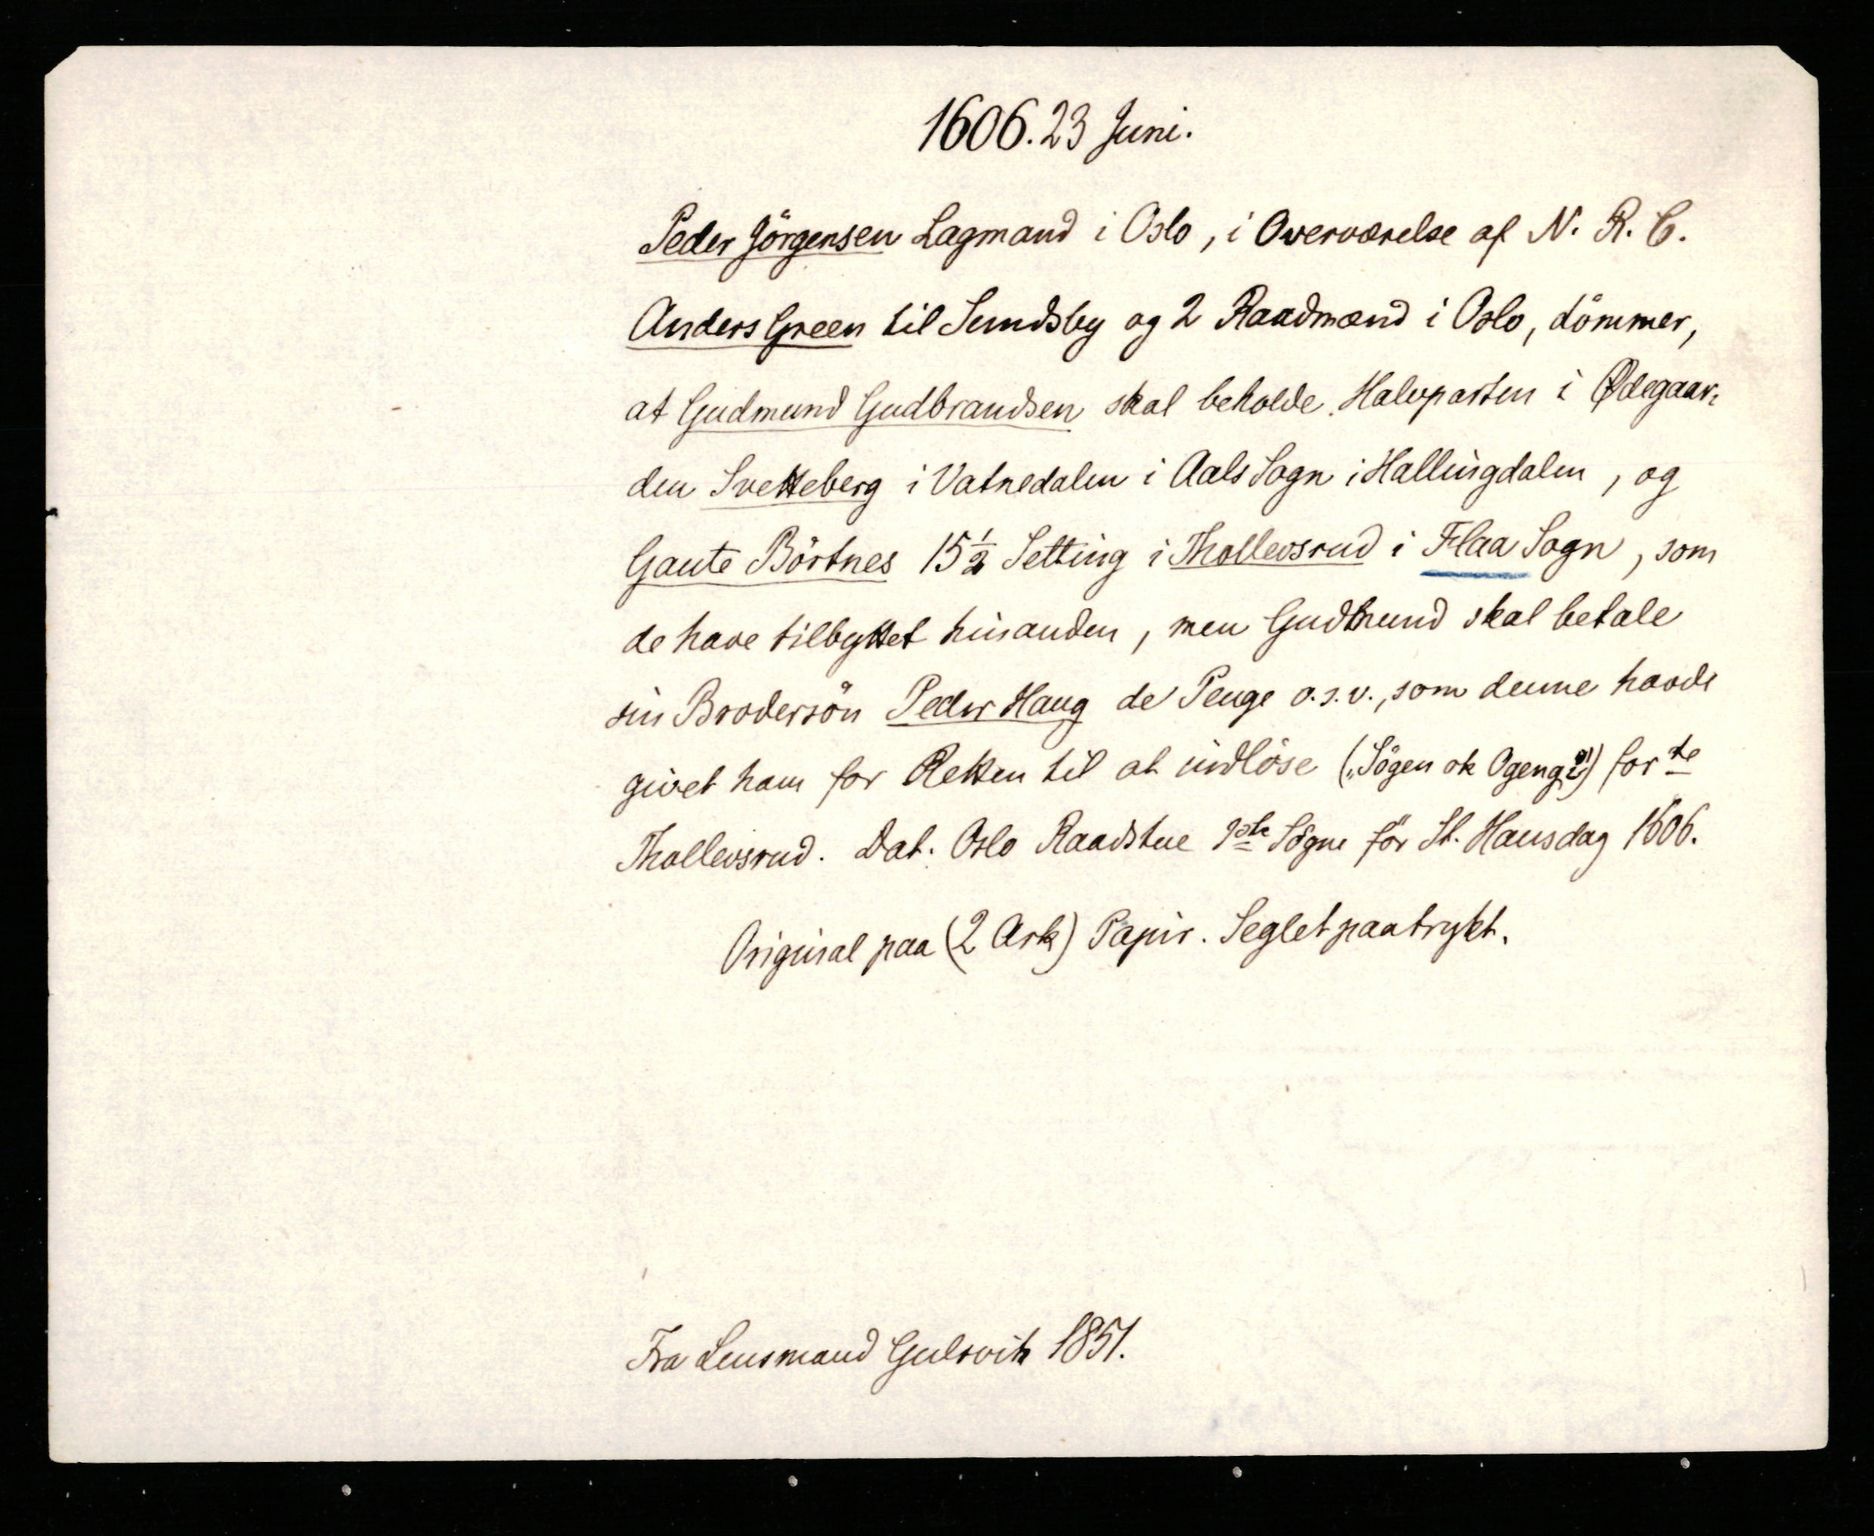 1606. 23 Juni.
Peder Jörgensen Lagmand i Oslo, i Overværelse af N. R. C.
Anders Green til Sundsby og 2 Raadmænd i Oslo, dömmer,
at Gudmund Gudbrandsen skal beholde Halvparten i Ødegaar-
den Svetteberg i Vatnedalen i Aals Sogn i Hallingdalen, og
Gaute Börtnes 15½ Setting i Thollevsrud i Flaa Sogn, som
de have tilbyttet hinanden, men Gudmund skal betale
sin Brodersön Peder Haug de Penge o.s.v., som denne havde
givet ham for Retten til at indlöse („Sögen ok Ogeng”) for te
Thollevsrud. Dat. Oslo Raadstue 1ste Sögne för St. Hansdag 1606.
Original paa (2 Ark) Papir. Seglet paatrykt.
Fra Lensmand Gulsvik 1851.